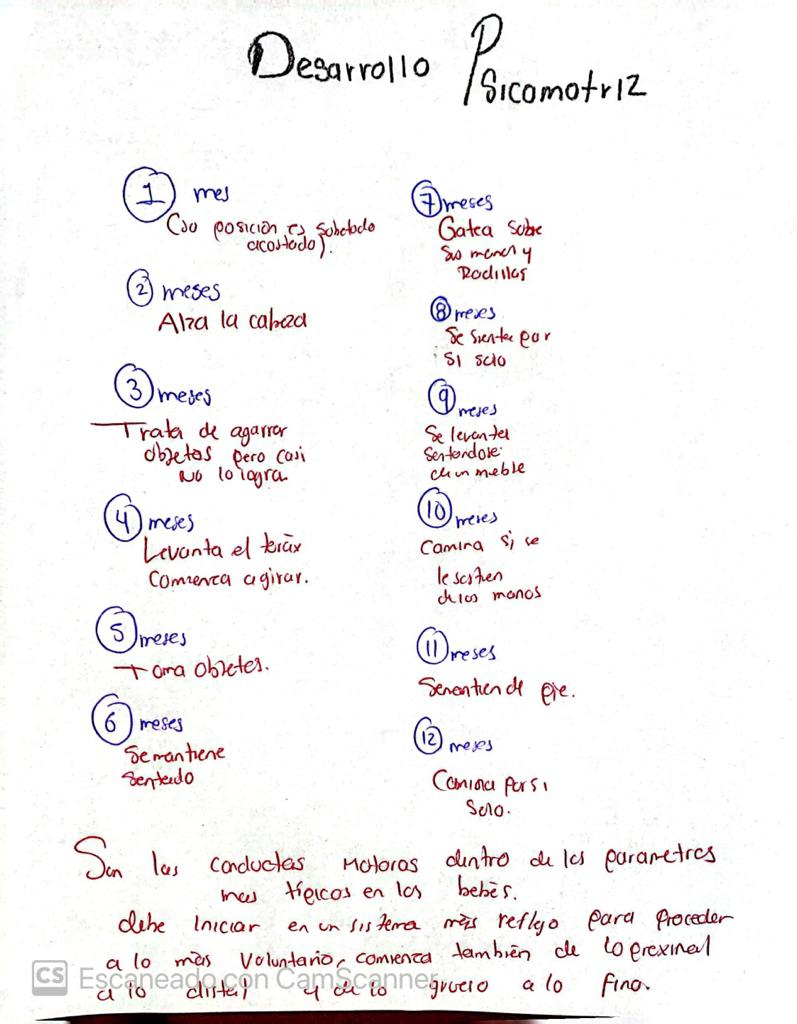 Desarrollo Psicomotriz
1 mes
(su posición es sobetodo
acostado).
2 meses
Alza la cabeza
3 meses
Trata de agarrar
objetos pero casi
no lo logra
4 meses
Levanta el toráx
comienza a girar.
5 meses
Toma objetos.
6 meses
Se mantiene
sentado
7 meses
Gatea sobre
sus manos y
Rodillas
8 meses
Se sienta por
si solo
9 meses
Se levanta
de un mueble
10 meses
Camina si se
le sostien
de las manos
11 meses
de pie.
12 meses
Camina por si
solo.
Son las conductas motoras dentro de los parametros
mas típicos en los bebès.
debe iniciar en un sistema màs reflejo para proceder
a lo màs voluntario, comienza también de lo proximal
a lo distal y de lo grueso a lo fino.
CS Escaneado con CamScanner